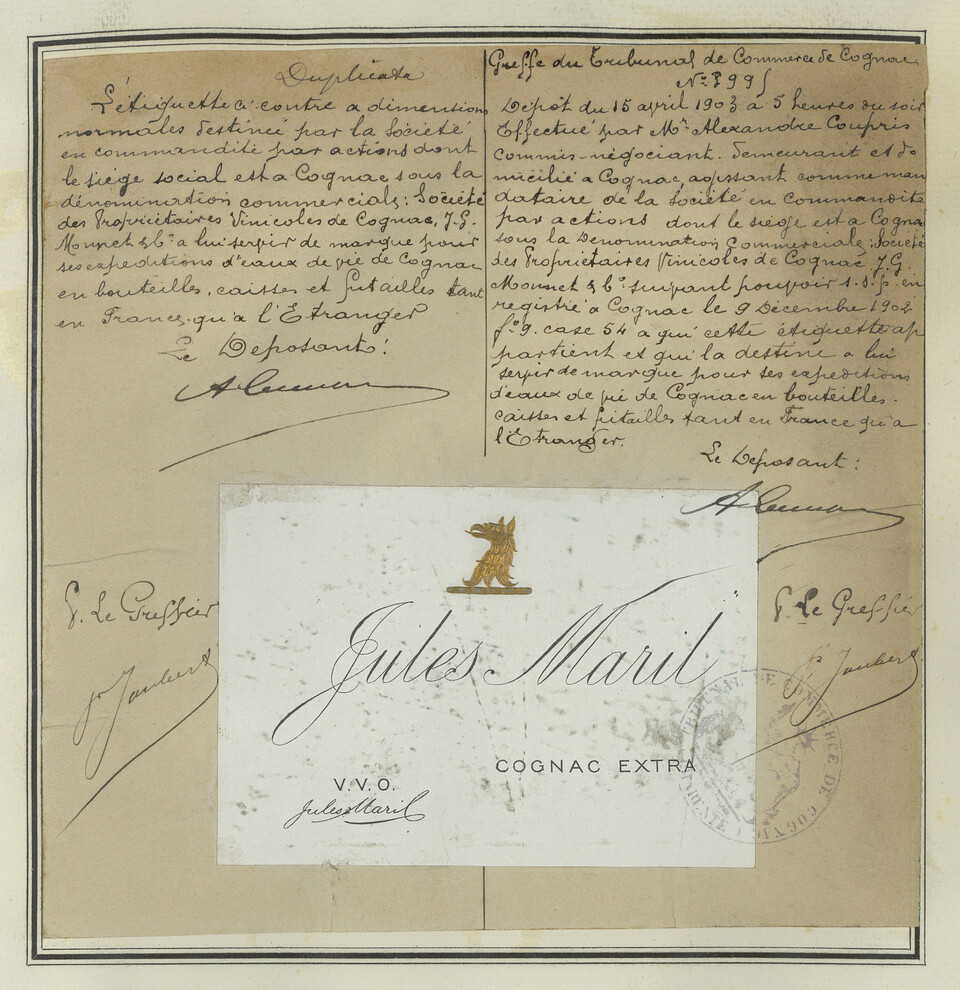 Duplicata
L'étiquette ci-contre a dimensions
normales destinée par la Société
en commandite par actions dont
le siège social est a Cognac sous la
dénomination commerciale; Société
des Propriétaires Vinicoles de Cognac, J.G.
Monnet & Cº a lui servir de marque pour
ses expeditions d'eaux de vie de Cognac
en bouteilles, caisses et futailles tant
en France qu'a l'Etranger
Le Deposant:
Greffe du Tribunal de Commerce de Cognac
Dépôt du 15 avril 1903 à 5 heures du soir
Effectué par Mr. Alexandre Coupris
commis-négociant. demeurant et do
micilié a Cognac agissant comme man
dataire de la Société en Commandite
par actions dont le siège est a Cognac
sous la Dénomination Commerciale; Société
des Propriétaires Vinicoles de Cognac, J.G.
Monnet & Cº suivant pouvoir s.s.p. en
registré a Cognac le 9 Décembre 1902
fº 9. case 54 a qui cette étiquette ap
partient et qui la destine a lui
servir de marque pour ses expeditions
d'eaux de vie de Cognac en bouteilles.
caisses et futailles tant en France qu'a
l'Etranger.
Le Deposant:
P. Le Greffier
Jaubert
P. Le Greffier
Jaubert
Jules Maril
COGNAC EXTRA
V.V.O.
Jules Maril
TRIBUNAL DE COMMERCE DE COGNAC